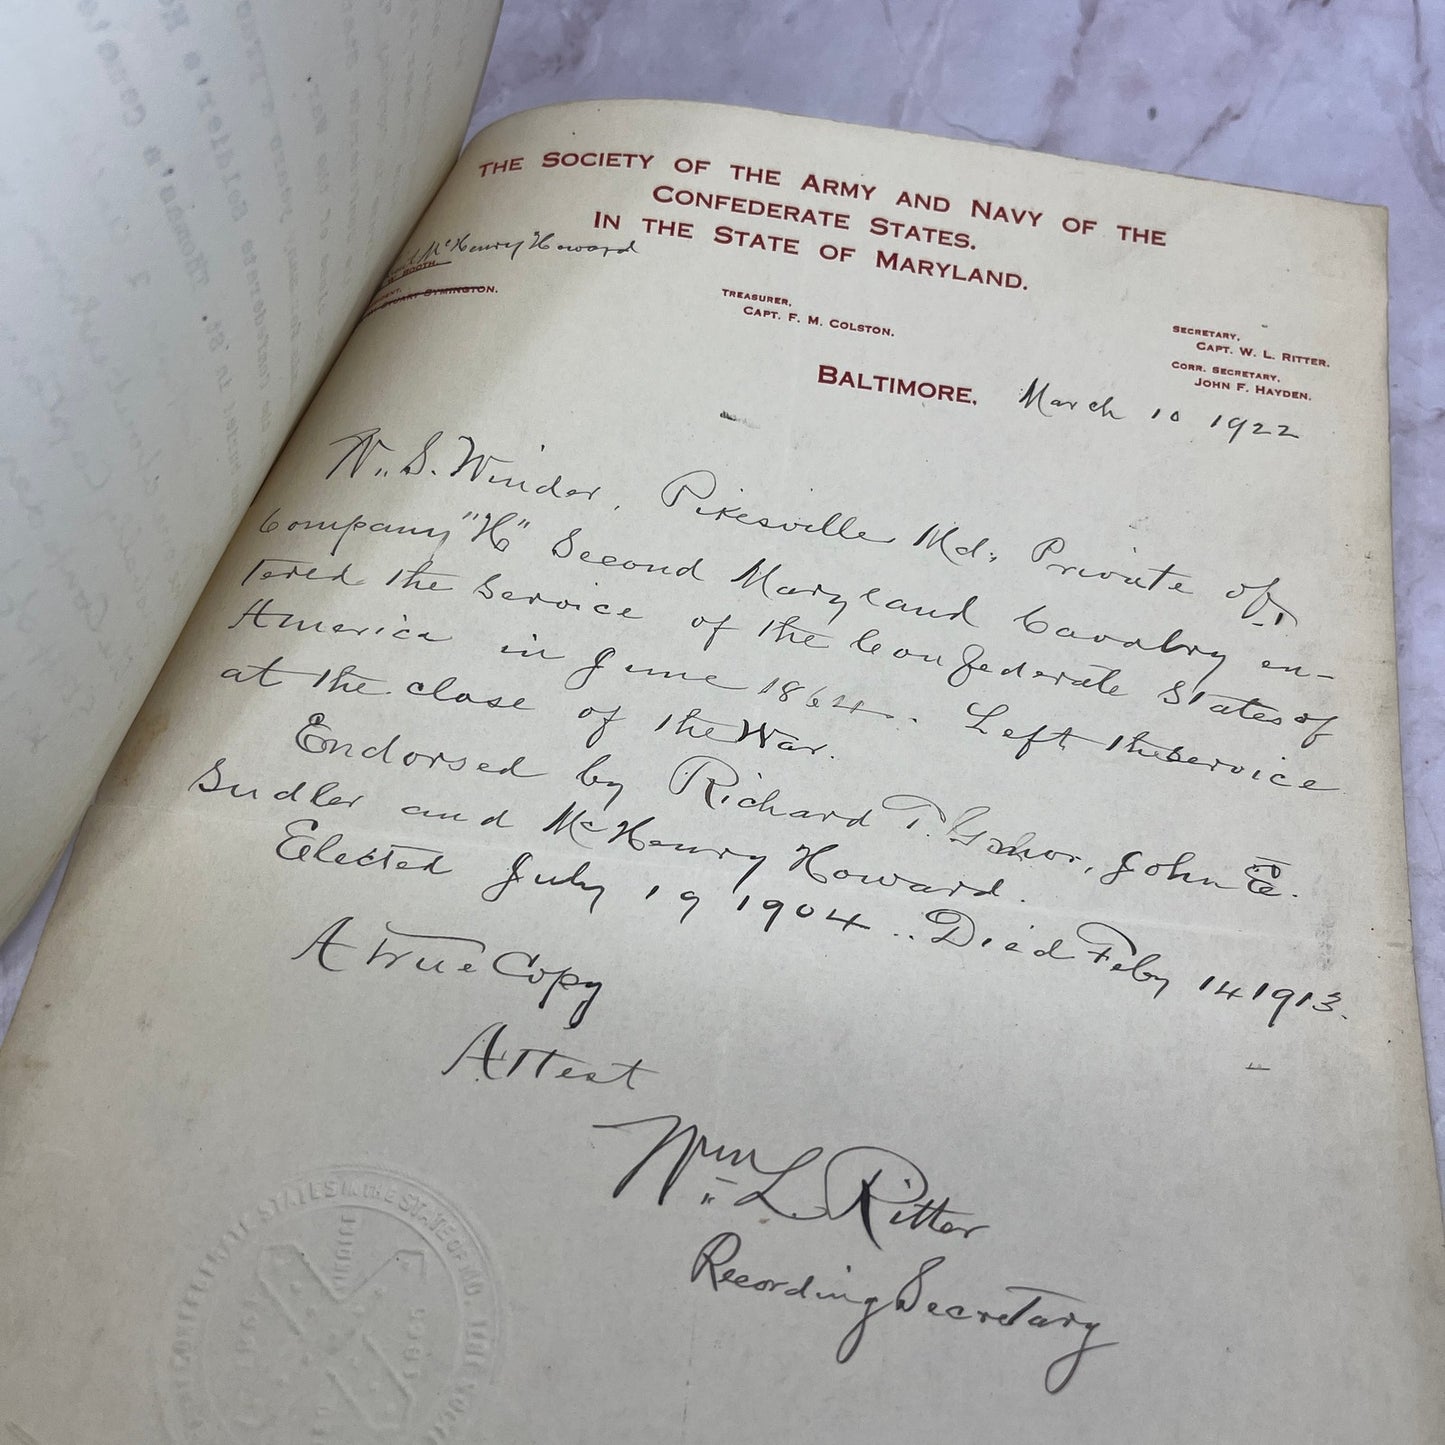 THE SOCIETY OF THE ARMY AND NAVY OF THE
CONFEDERATE STATES.
IN THE STATE OF MARYLAND.
McHenry Howard
BOOTH.
STUART SYMINGTON.
TREASURER,
CAPT. F. M. COLSTON.
SECRETARY,
CAPT. W. L. RITTER.
CORR. SECRETARY,
JOHN F. HAYDEN.
BALTIMORE, March 10 1922
W. S. Winder, Pikesville Md, Private of
Company "H" Second Maryland Cavalry en-
tered the service of the Confederate States of
America in June 1864. Left the service
at the close of the War.
Endorsed by Richard T. Gilmor, John E.
Sudler and McHenry Howard.
Elected July 19 1904.. Died Feby 14 1913.
A True Copy
Attest
Wm L. Ritter
Recording Secretary
STATES IN THE STATE OF MD.